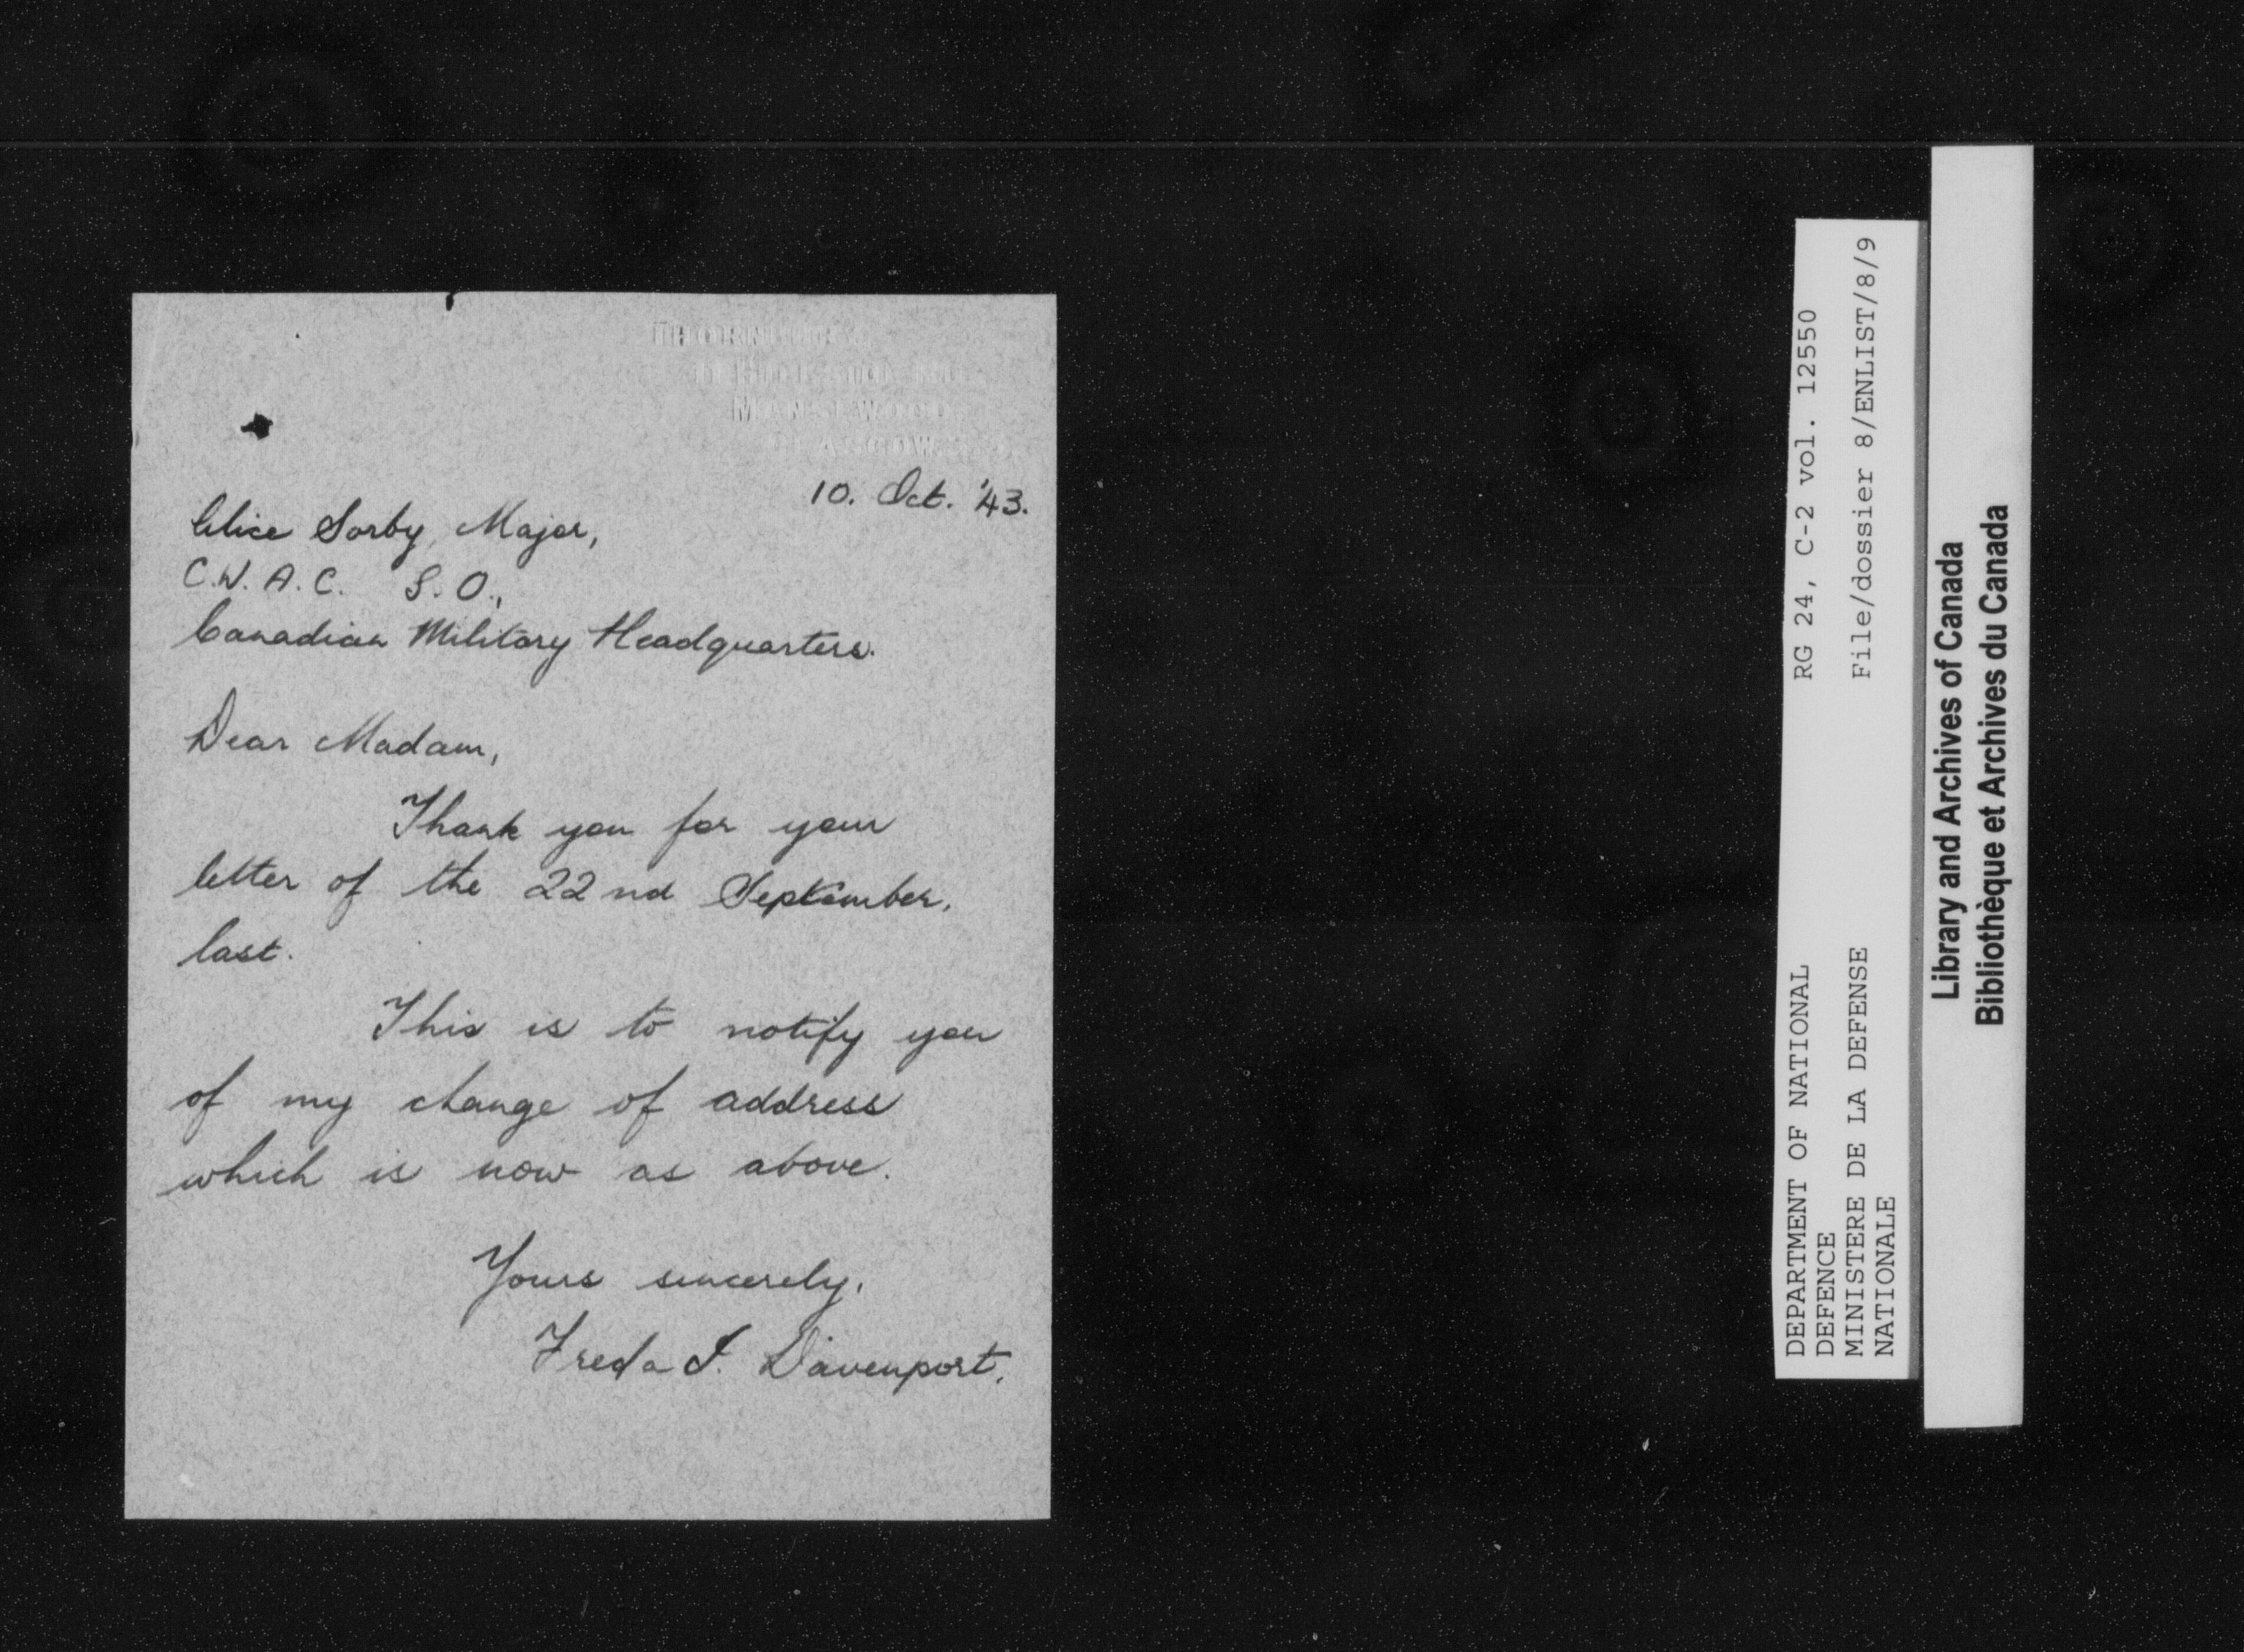 MANSEWOOD
GLASGOW
10. Oct. '43.
Alice Sorby, Major,
C.W.A.C. S.O.,
Canadian Military Headquarters.
Dear Madam,
Thank you for your
letter of the 22nd September,
last.
This is to notify you
of my change of address
which is now as above.
Yours sincerely,
Freda I. Davenport.
DEPARTMENT OF NATIONAL
DEFENCE
MINISTERE DE LA DEFENSE
NATIONALE
RG 24, C-2 vol. 12550
File/dossier 8/ENLIST/8/9
Library and Archives of Canada
Bibliothèque et Archives du Canada